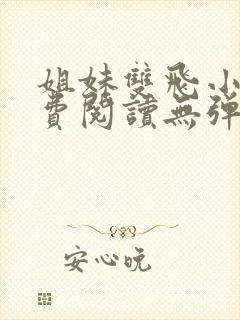 姐妹雙飛小
費閱讀無彈
安心晚